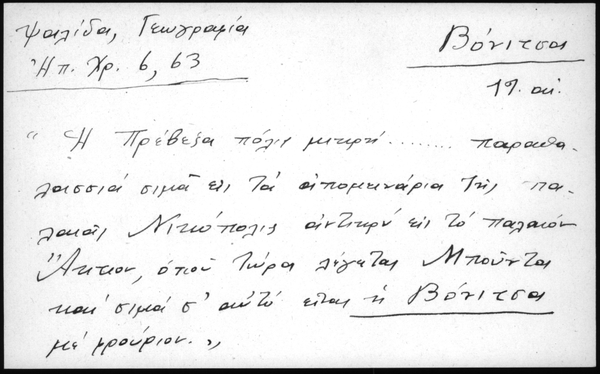 Ψαλίδα, Γεωγραφία
Ἠπ. Χρ. 6, 63
Βόνιτσα
19. αἰ.
"Ἡ Πρέβεζα πόλις μικρή ........ παραθα-
λασσιά σιμᾶ εἰς τά ἀπομεινάρια τῆς πα-
λαιᾶς Νικόπολις ἀντικρύ εἰς τό παλαιόν
Ἄκτιον, ὁποῦ τώρα λέγεται Μπούντα
καί σιμά σ' αὐτό εἶται ἡ Βόνιτσα
μέ φρούριον."